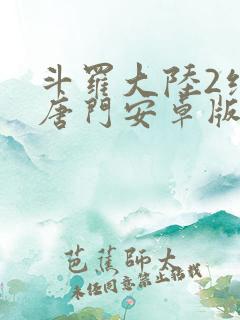 斗羅大陸2
唐門安卓版
芭蕉師大
未经同意禁止搭载